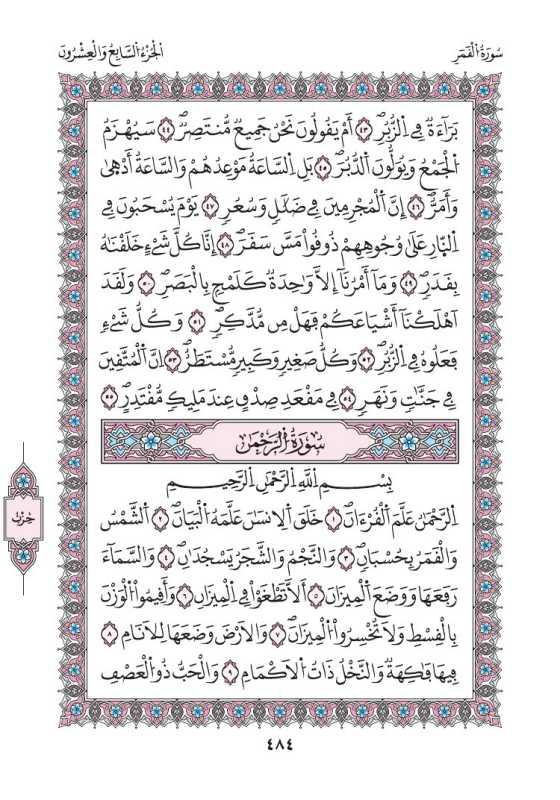 سُورَةُ اَلْقَمَرِ
اَلْجُزْءُ اَلسَّابِعُ وَالْعِشْرُونَ
بَرَآءَةٞ فِے اِ۬لزُّبُرِۖ ٤٣ أَمْ يَقُولُونَ نَحْنُ جَمِيعٞ مُّنتَصِرٞۖ ٤٤ سَيُهْزَمُ
اُ۬لْجَمْعُ وَيُوَلُّونَ اَ۬لدُّبُرَۖ ٤٥ بَلِ اِ۬لسَّاعَةُ مَوْعِدُهُمْ وَالسَّاعَةُ أَدْهٰى
وَأَمَرُّۖ ٤٦ إِنَّ اَ۬لْمُجْرِمِينَ فِے ضَلَٰلٖ وَسُعُرٖۖ ٤٧ يَوْمَ يُسْحَبُونَ فِے
اِ۬لنّ۪ارِ عَلَىٰ وُجُوهِهِمْ ذُوقُواْ مَسَّ سَقَرَۖ ٤٨ إِنَّا كُلَّ شَےْءٍ خَلَقْنَٰهُ
بِقَدَرٖۖ ٤٩ وَمَآ أَمْرُنَآ إِلَّا وَٰحِدَةٞ كَلَمْحِۢ بِالْبَصَرِۖ ٥٠ وَلَقَدَ
اَهْلَكْنَآ أَشْيَاعَكُمْ فَهَلْ مِن مُّدَّكِرٖۖ ٥١ وَكُلُّ شَےْءٖ
فَعَلُوهُ فِے اِ۬لزُّبُرِۖ ٥٢ وَكُلُّ صَغِيرٖ وَكَبِيرٖ مُّسْتَطَرٌۖ ٥٣ اِنَّ اَ۬لْمُتَّقِينَ
فِے جَنَّٰتٖ وَنَهَرٖ ٥٤ فِے مَقْعَدِ صِدْقٍ عِندَ مَلِيكٖ مُّقْتَدِرٖۖ ٥٥
سُورَةُ اُ۬لرَّحْمَٰنِ
بِسْمِ اِ۬للَّهِ اِ۬لرَّحْمَٰنِ اِ۬لرَّحِيمِ
اِ۬لرَّحْمَٰنُ عَلَّمَ اَ۬لْقُرْءَانَۖ ١ خَلَقَ اَ۬لِانسَٰنَ عَلَّمَهُ اُ۬لْبَيَانَۖ ٢ اَ۬لشَّمْسُ
وَالْقَمَرُ بِحُسْبَانٖۖ ٣ وَالنَّجْمُ وَالشَّجَرُ يَسْجُدَٰنِۖ ٤ وَالسَّمَآءَ
رَفَعَهَا وَوَضَعَ اَ۬لْمِيزَانَ ٥ أَلَّا تَطْغَوْاْ فِے اِ۬لْمِيزَانِۖ ٦ وَأَقِيمُواْ اُ۬لْوَزْنَ
بِالْقِسْطِ وَلَا تُخْسِرُواْ اُ۬لْمِيزَانَۖ ٧ وَالَارْضَ وَضَعَهَا لِلَانَامِ ٨
فِيهَا فَٰكِهَةٞ وَالنَّخْلُ ذَاتُ اُ۬لَاكْمَامِ ٩ وَالْحَبُّ ذُو اُ۬لْعَصْفِ
حِزْبٌ
٤٨٤